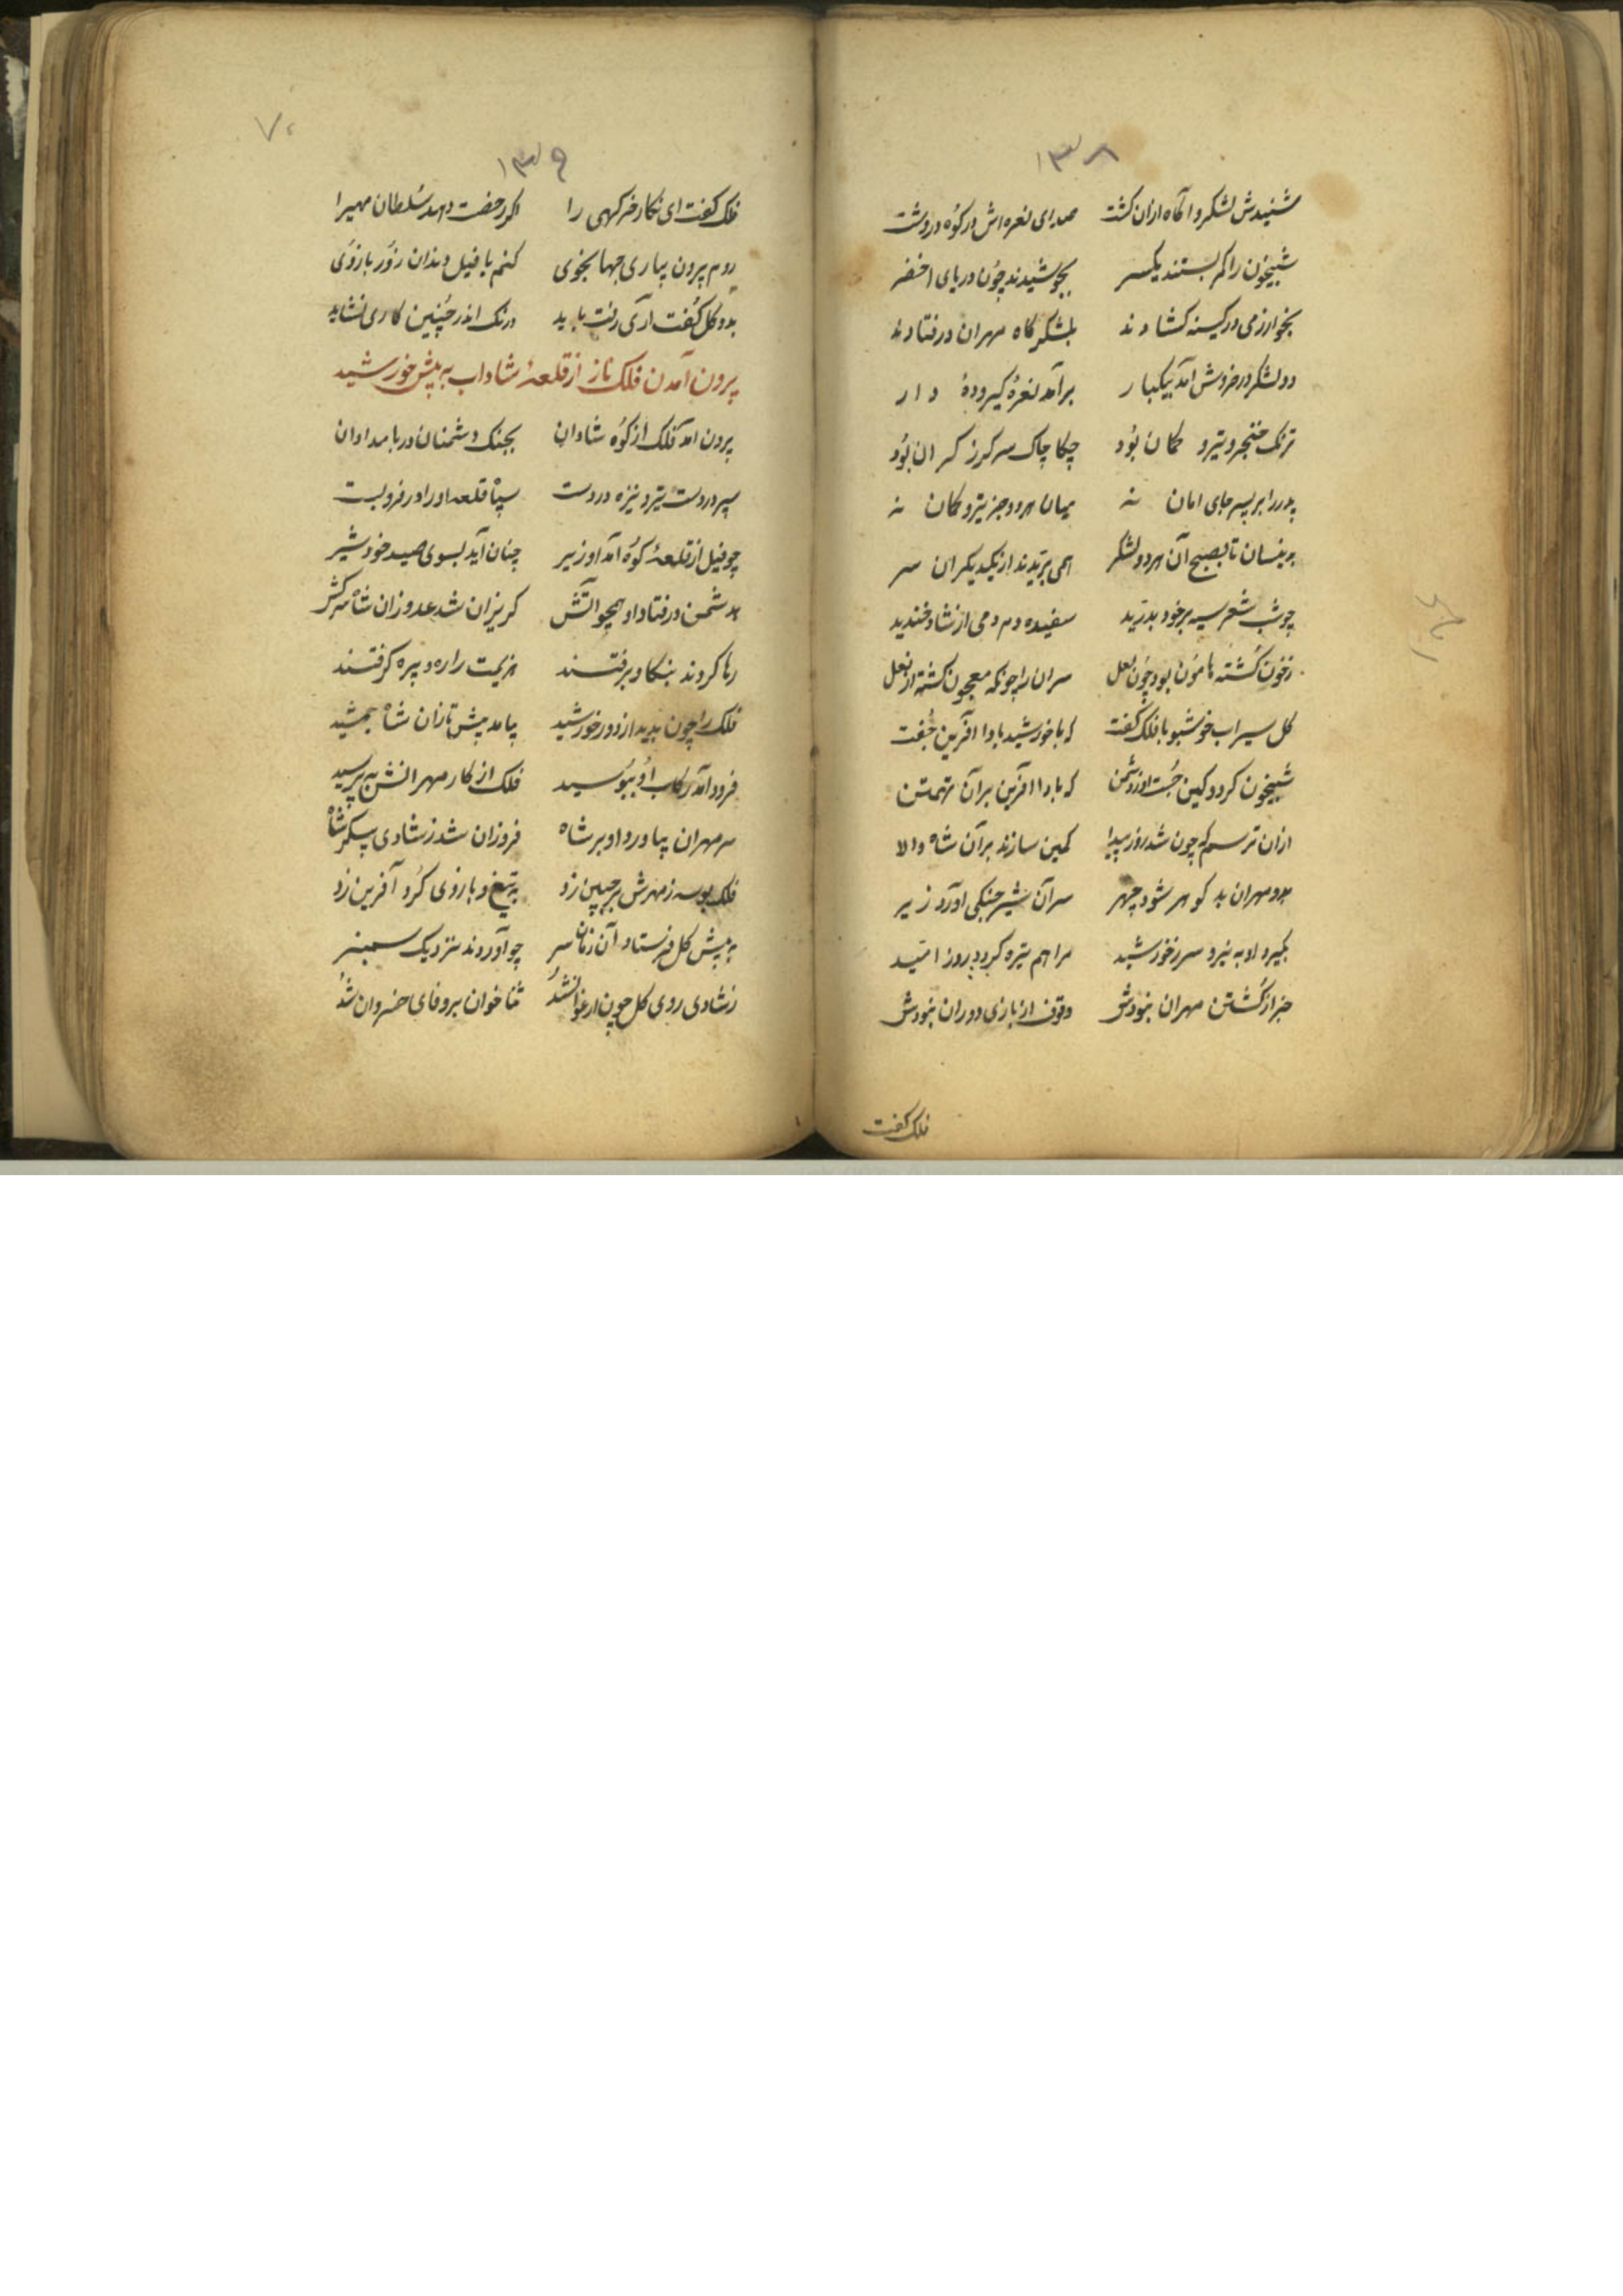 ۱۳۸
شنیدش لشکر و آگاه ازان گشت صدای نعره‌اش در کوه و در دشت
شبیخون را کمر بستند یکسر بجوشیدند چون دریای اخضر
بخوارزمی در کینه گشادند بلشکرگاه مهران در فتادند
دو لشکر در خروش آمد بیکبار برآمد نعرهٔ گیر و دۀ و دار
ترنک خنجر و تیر و کمان بود چکاچاک سر گرز گران بود
پدر را بر پسر جای امان نه میان هر دو جز تیر و کمان نه
بدینسان تا بصبح آن هر دو لشکر همی بریدند از یکدیگران سر
چو شب شعر سیه بر خود بدرید سفیده دم دمی از شاد خندید
ز خون گشته هامون بود چون لعل سران را چونکه معجون گشته از نعل
گل سیراب خوشبو با فلک گفت که با خورشید بادا آفرین جفت
شبیخون کرد و کین جست او ز دشمن که بادا آفرین بر آن تهمتن
ازان ترسم که چون شد روز پیدا کمین سازند بر آن شاه والا
بدو مهران بد گوهر شود چهر سر آن شیر جنگی آورد زیر
بگیرد او به نیرو سر ز خورشید مرا هم تیره گردد روز امید
خبر از کشتن مهران نبودش وقوف از بازی دوران نبودش
فلک گفت
۱۳۹
۷۰
فلک گفت ای نگار خرگهی را اگر رخصت دهد سلطان مهیرا
روم بیرون بیاری جهانجوی کنم با فیل دندان زور بازوی
بدو گل گفت آری رفت باید درنک اندر چنین کاری نشاید
بیرون آمدن فلک ناز از قلعهٔ شاداب به پیش خورشید
بیرون آمد فلک از کوه شادان بجنک دشمنان در بامدادان
سپر در دست تیر و نیزه در دست سپاه قلعه او را در فرو بست
چو فیل از قلعهٔ کوه آمد او زیر چنان آید بسوی صید خود شیر
به دشمن در فتاد او همچو آتش گریزان شد عدو زان شاه سرکش
رها کردند بنگاه و برفتند هزیمت را ره و بیره گرفتند
فلک را چون بدید از دور خورشید بیامد پیش تازان شاه جمشید
فرود آمد رکاب او ببوسید فلک از کار مهرانش به پرسید
سر مهران بیاورد او بر شاه فروزان شد ز شادی پیکر شاه
فلک بوسه ز مهرش بر جبین زد به تیغ و بازوی گرد آفرین زد
به پیش گل فرستاد آن زمان سر چو آوردند نزدیک سمنبر
ز شادی روی گل چون ارغوان شد ثنا خوان بر وفای خسروان شد